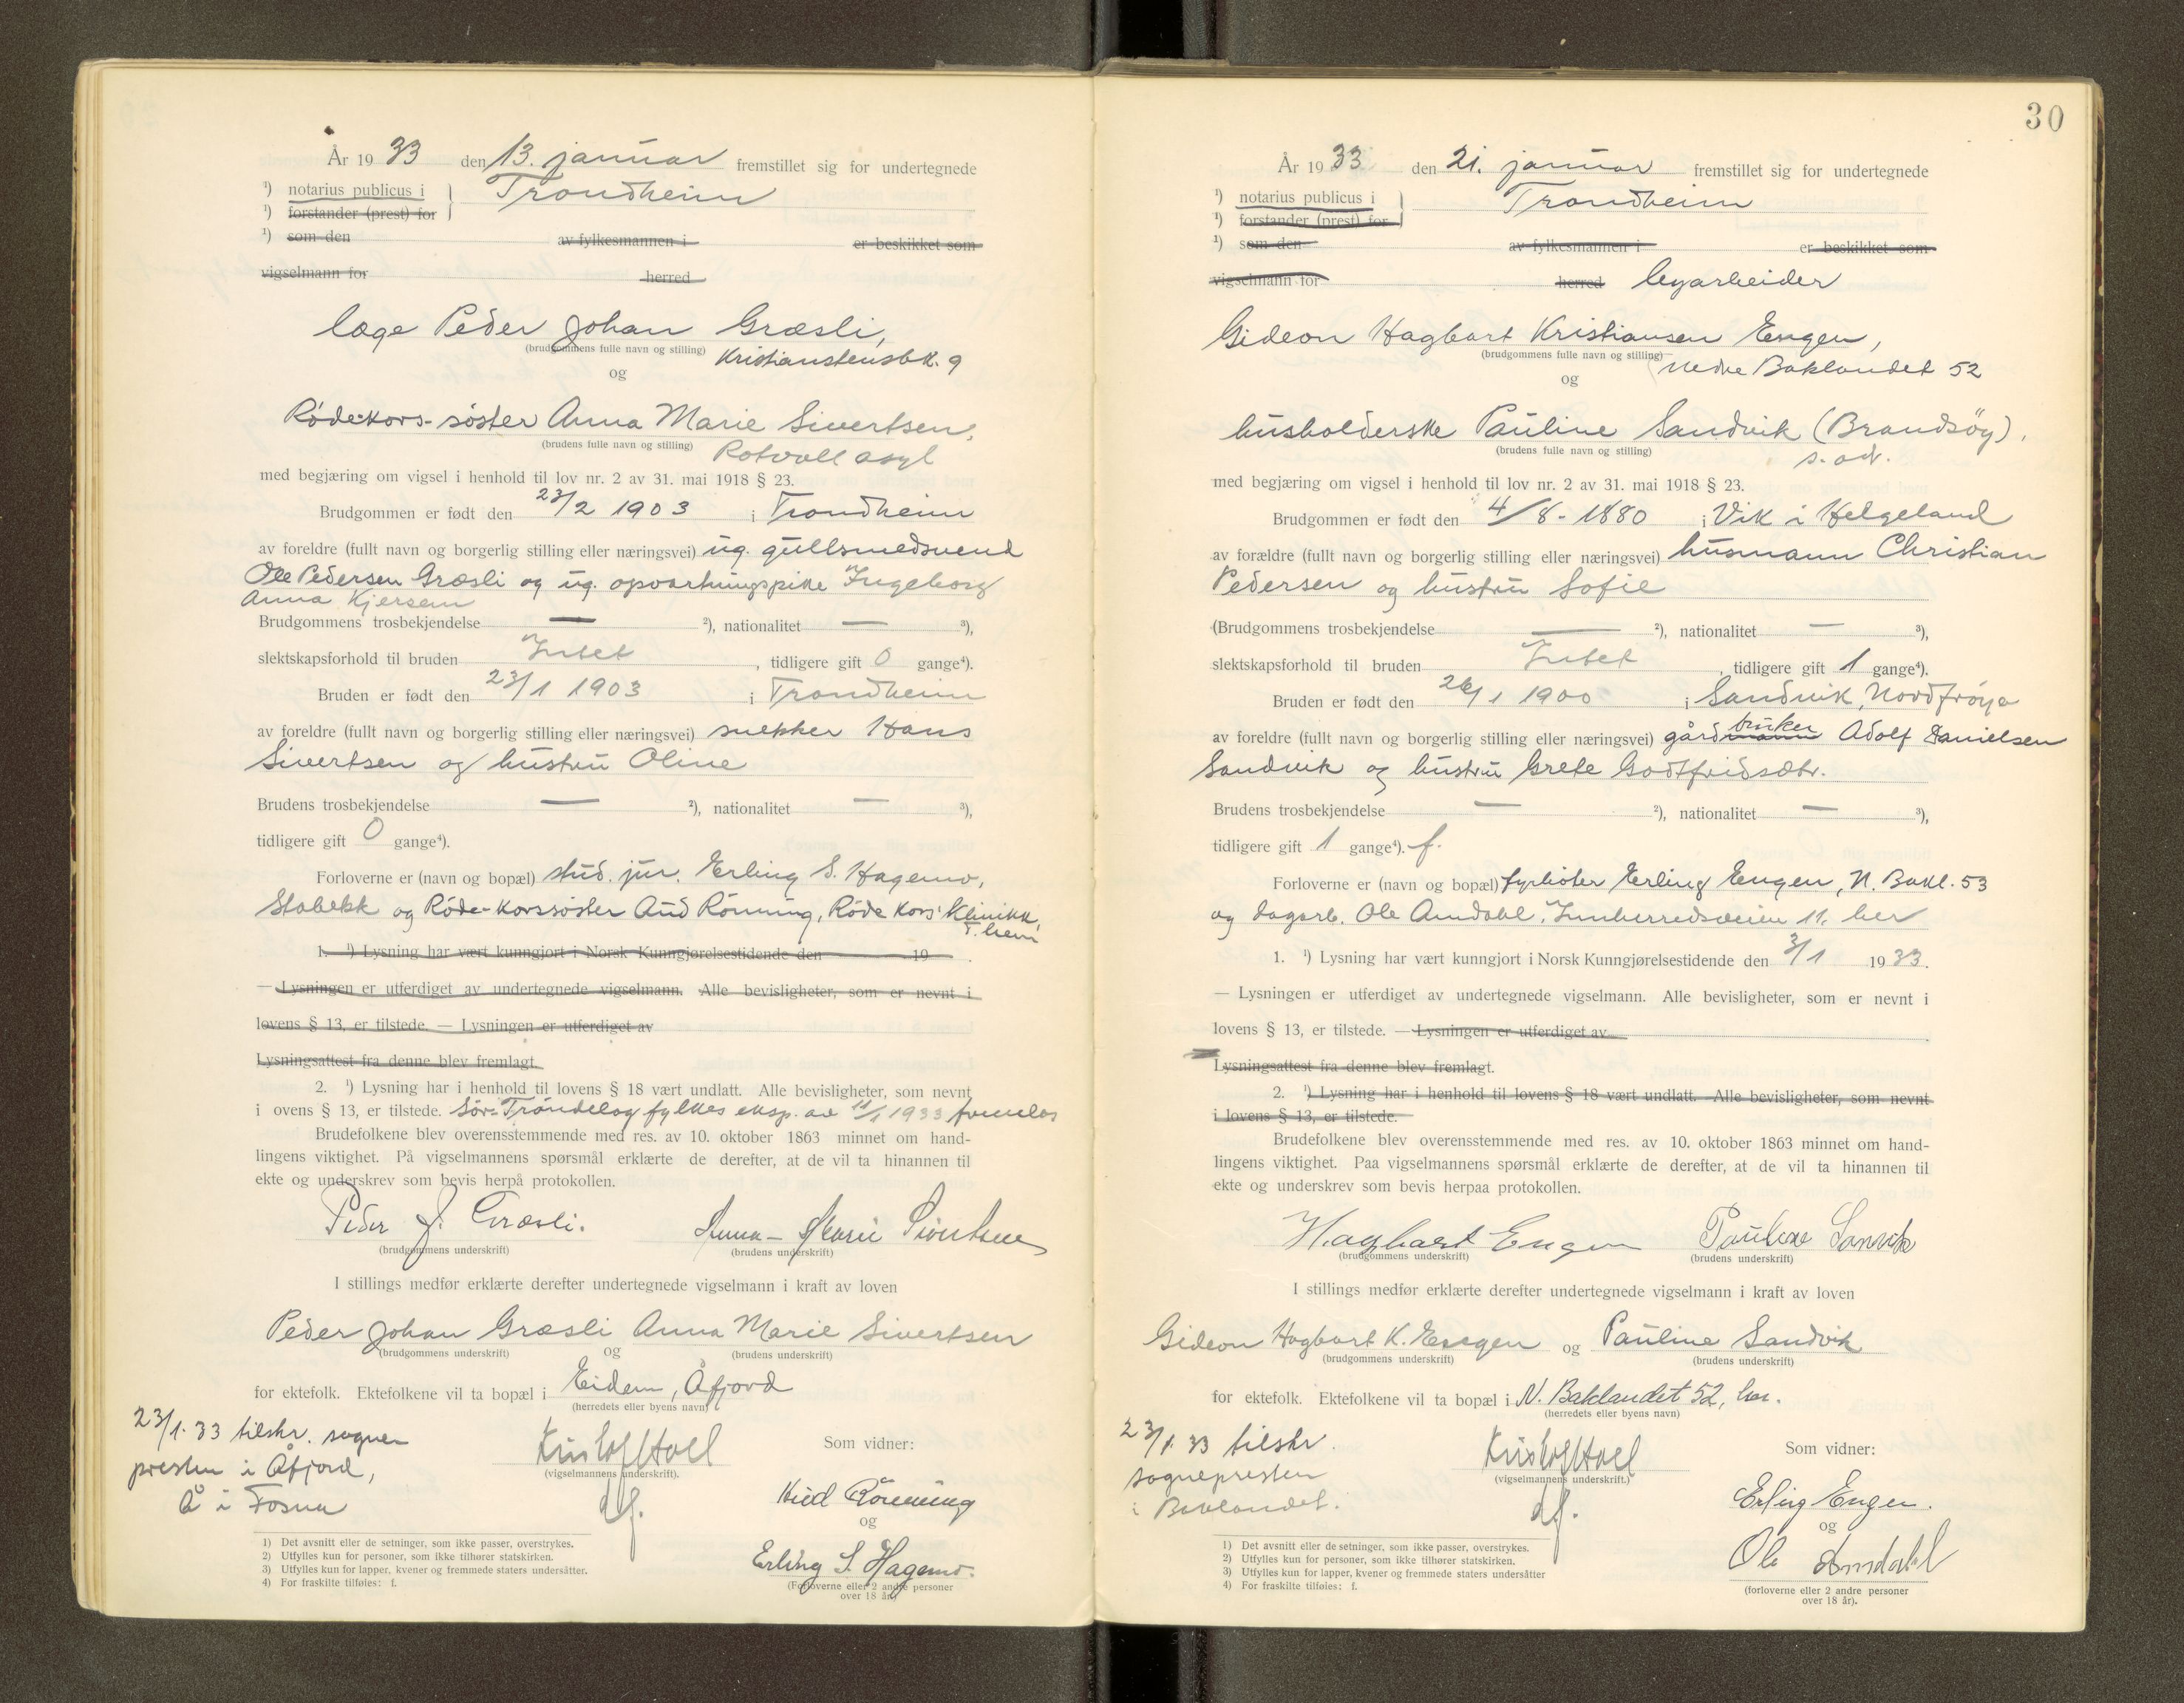 År 1933 den 13. januar fremstillet sig for undertegnede
¹) notarius publicus i Trondheim
¹) forstander (prest) for
¹) som den av fylkesmannen i er beskikket som
vigselmann for herred
læge Peder Johan Græsli,
(brudgommens fulle navn og stilling) Kristianstensbk. 9
og
Røde-kors-søster Anna Marie Sivertsen,
(brudens fulle navn og stilling) Rotvoll asyl
med begjæring om vigsel i henhold til lov nr. 2 av 31. mai 1918 § 23.
Brudgommen er født den 23/2 1903 i Trondheim
av foreldre (fullt navn og borgerlig stilling eller næringsvei) ug. gullsmedsvend
Ole Pedersen Græsli og ug. opvartningspike Ingeborg
Anna Kjersem
Brudgommens trosbekjendelse — ²), nationalitet — ³),
slektskapsforhold til bruden Intet, tidligere gift 0 gange⁴).
Bruden er født den 23/1 1903 i Trondheim
av foreldre (fullt navn og borgerlig stilling eller næringsvei) snekker Hans
Sivertsen og hustru Oline
Brudens trosbekjendelse — ²), nationalitet — ³),
tidligere gift 0 gange⁴).
Forloverne er (navn og bopæl) stud. jur. Erling S. Hagemo,
Stabekk og Røde-korssøster Aud Rönning, Røde Kors' Klinikk,
T.heim
1. ¹) Lysning har vært kunngjort i Norsk Kunngjørelsestidende den 19 .
— Lysningen er utferdiget av undertegnede vigselmann. Alle bevisligheter, som er nevnt i
lovens § 13, er tilstede. — Lysningen er utferdiget av
Lysningsattest fra denne blev fremlagt.
2. ¹) Lysning har i henhold til lovens § 18 vært undlatt. Alle bevisligheter, som nevnt
i ovens § 13, er tilstede. Sør-Trøndelag fylkes eksp. av 11/1 1933 fremlas
Brudefolkene blev overensstemmende med res. av 10. oktober 1863 minnet om hand-
lingens viktighet. På vigselmannens spørsmål erklærte de derefter, at de vil ta hinannen til
ekte og underskrev som bevis herpå protokollen.
Peder J. Græsli. Anna-Marie Sivertsen
(brudgommens underskrift) (brudens underskrift)
I stillings medfør erklærte derefter undertegnede vigselmann i kraft av loven
Peder Johan Græsli og Anna Marie Sivertsen
(brudgommens underskrift) (brudens underskrift)
for ektefolk. Ektefolkene vil ta bopæl i Eidem, Åfjord
(herredets eller byens navn)
23/1. 33 tilskr. sogne
presten i Åfjord,
Å i Fosna
Kristoff Hoel
(vigselmannens underskrift).
Som vidner:
Aud Rönning
og
Erling S. Hagemo.
(Forloverne eller 2 andre personer
over 18 år)
1) Det avsnitt eller de setninger, som ikke passer, overstrykes.
2) Utfylles kun for personer, som ikke tilhører statskirken.
3) Utfylles kun for lapper, kvener og fremmede staters undersåtter.
4) For fraskilte tilføies: f.
30
År 1933 den 21. januar fremstillet sig for undertegnede
¹) notarius publicus i Trondheim
¹) forstander (prest) for
¹) som den av fylkesmannen i er beskikket som
vigselmann for herred løsarbeider
Gideon Hagbart Kristiansen Engen,
(brudgommens fulle navn og stilling) Nedre Baklandet 52
og
husholderske Pauline Sandvik (Brandsöy),
(brudens fulle navn og stilling) s. ad.
med begjæring om vigsel i henhold til lov nr. 2 av 31. mai 1918 § 23.
Brudgommen er født den 4/8-1880 i Vik i Helgeland
av forældre (fullt navn og borgerlig stilling eller næringsvei) husmann Christian
Pedersen og hustru Sofie
(Brudgommens trosbekjendelse — ²), nationalitet — ³),
slektskapsforhold til bruden Intet, tidligere gift 1 gange⁴).
Bruden er født den 26/1 1900 i Sandvik, Nordfröya
av foreldre (fullt navn og borgerlig stilling eller næringsvei) gårdmann bruker Adolf Danielsen
Sandvik og hustru Grete Godtfridsdtr.
Brudens trosbekjendelse — ²), nationalitet — ³),
tidligere gift 1 gange⁴). f.
Forloverne er (navn og bopæl) fyrböter Erling Engen, N. Bakl. 53
og dagarb. Ole Amdahl, Innherredsveien 11, her
1. ¹) Lysning har vært kunngjort i Norsk Kunngjørelsestidende den 3/1 1933.
— Lysningen er utferdiget av undertegnede vigselmann. Alle bevisligheter, som er nevnt i
lovens § 13, er tilstede. — Lysningen er utferdiget av
Lysningsattest fra denne blev fremlagt.
2. ¹) Lysning har i henhold til lovens § 18 vært undlatt. Alle bevisligheter, som nevnt
i lovens § 13, er tilstede.
Brudefolkene blev overensstemmende med res. av 10. oktober 1863 minnet om hand-
lingens viktighet. Paa vigselmannens spørsmål erklærte de derefter, at de vil ta hinannen til
ekte og underskrev som bevis herpaa protokollen.
Hagbart Engen Pauline Sanvik
(brudgommens underskrift) (brudens underskrift)
I stillings medfør erklærte derefter undertegnede vigselmann i kraft av loven
Gideon Hagbart K. Engen og Pauline Sandvik
(brudgommens underskrift) (brudens underskrift)
for ektefolk. Ektefolkene vil ta bopæl i N. Baklandet 52, her.
(herredets eller byens navn)
23/1. 33 tilskr.
sognepresten
i Baklandet.
Kristoff Hoel
(vigselmannens underskrift.)
Som vidner:
Erling Engen.
og
Ole Amdahl
(forloverne eller 2 andre personer
over 18 år).
1) Det avsnitt eller de setninger, som ikke passer, overstrykes.
2) Utfylles kun for personer, som ikke tilhører statskirken.
3) Utfylles kun for lapper, kvener og fremmede staters undersåtter
4) For fraskilte tilføies: f.